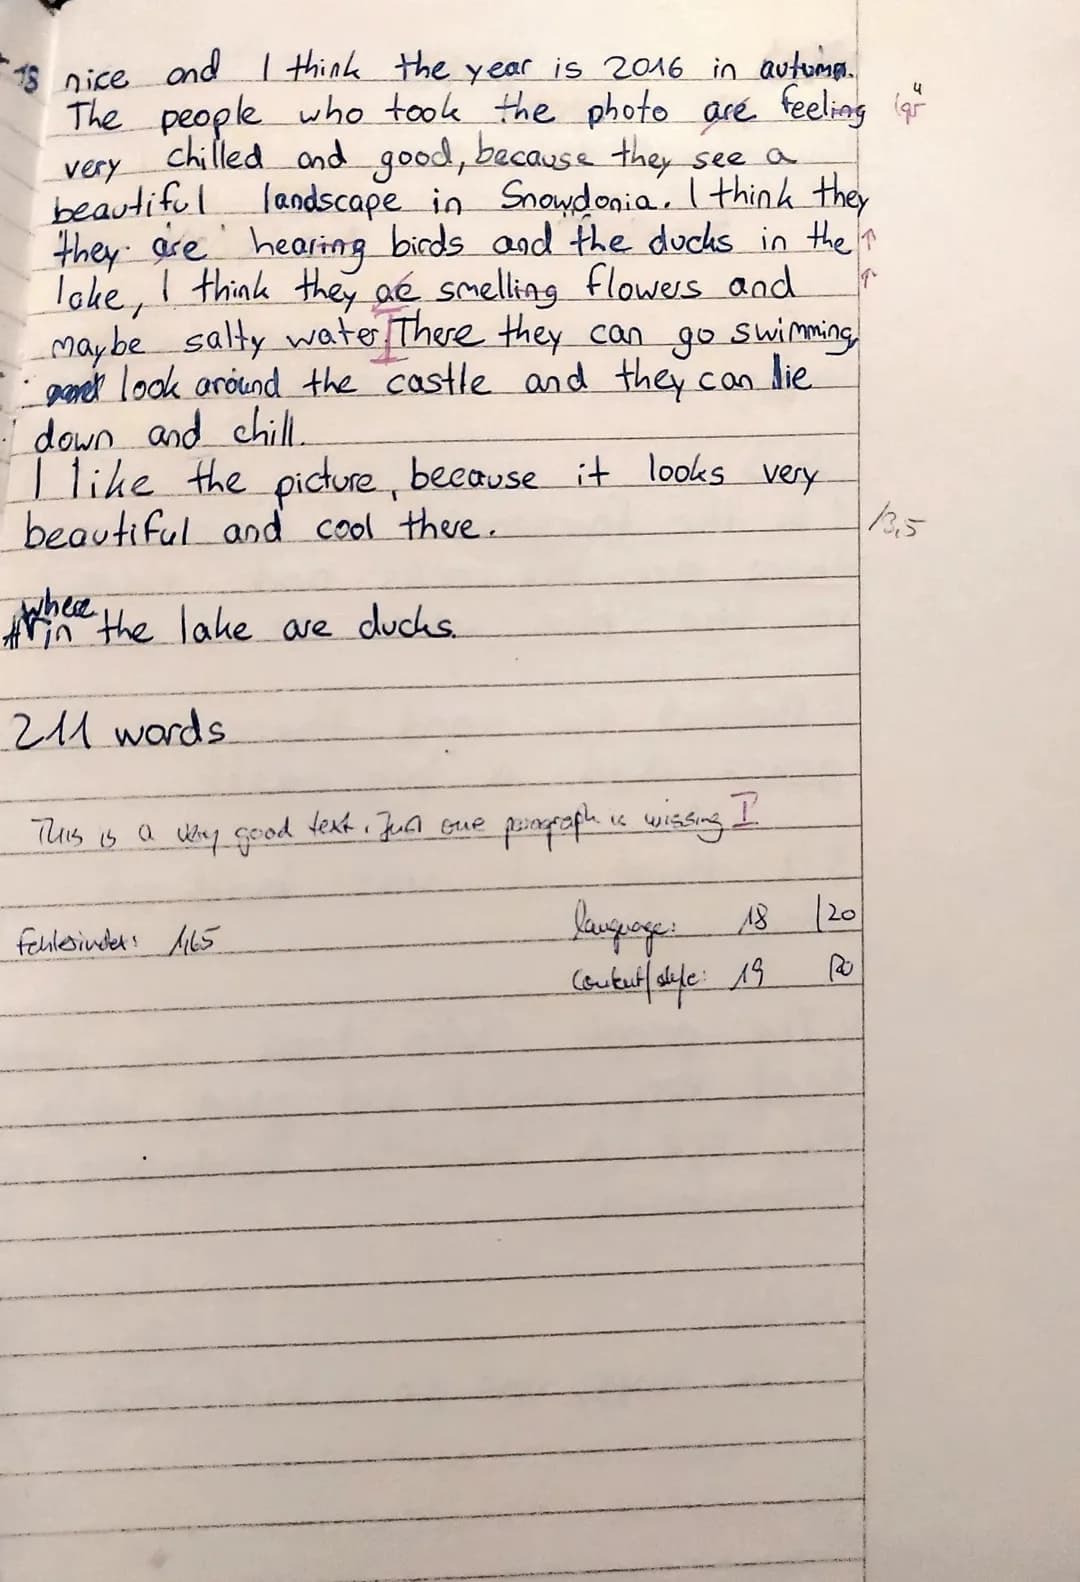 is nice and I think the year is 2016 in autumn.
The people who took the photo are feeling (gr
very chilled and good, because they see a
beautiful landscape in Snowdonia. I think they
they are hearing birds and the ducks in the
lake, I think they ae smelling flowers and
maybe salty water. There they can go swimming,
look around the castle and they can lie
down and chill.
I like the picture, because it looks very
beautiful and cool there. /3,5
where
# in the lake are ducks.
211 words
This is a very good text. Just one paragraph is missing I
Fehlerindex: 1,65
language: 18 /20
Content/style: 19 20